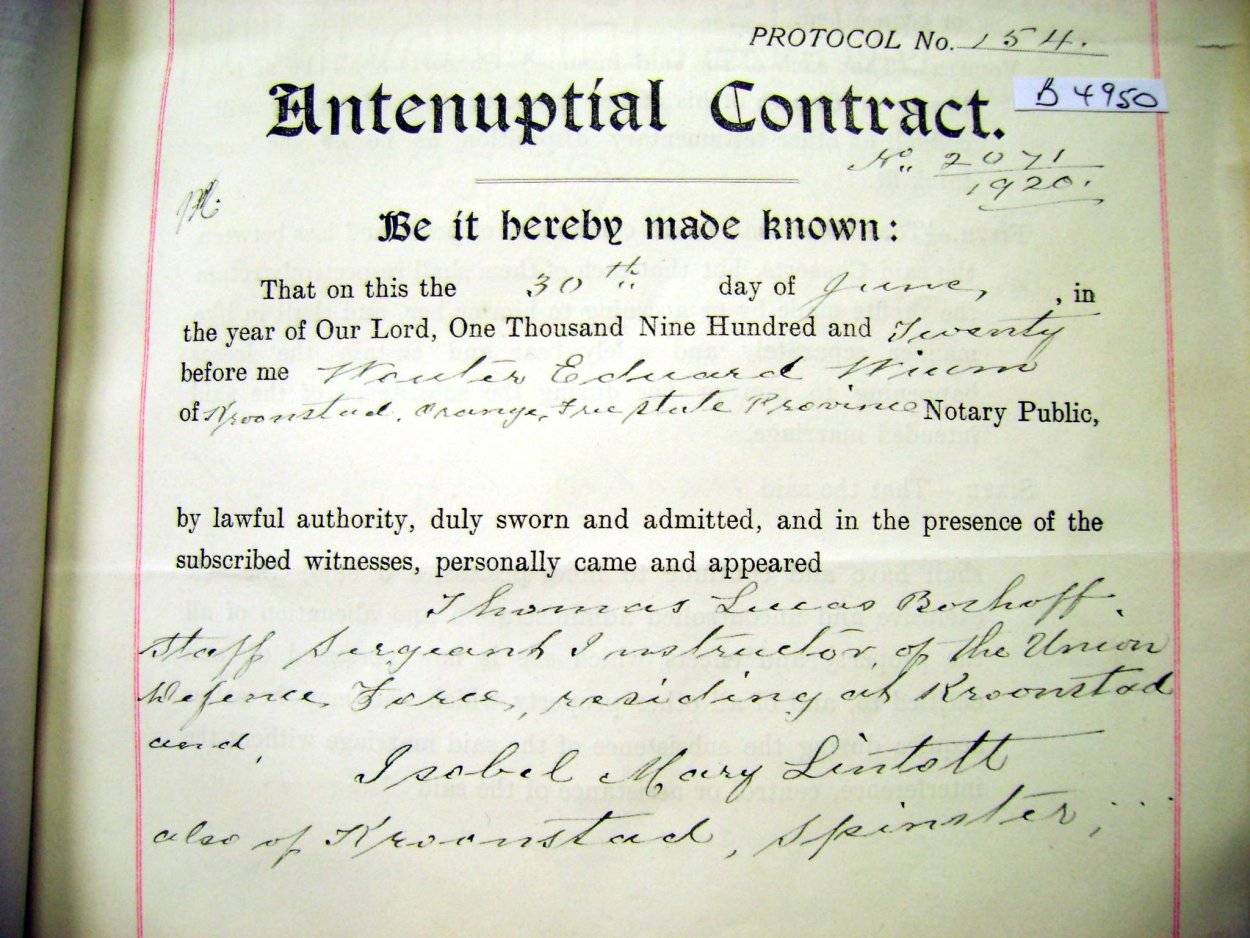 PROTOCOL No. 154.
Antenuptial Contract.
B 4950
No. 2071
1920.
Be it hereby made known:
That on this the 30th day of June, , in
the year of Our Lord, One Thousand Nine Hundred and Twenty
before me Wouter Eduard Wium
of Kroonstad, Orange Free State Province Notary Public,
by lawful authority, duly sworn and admitted, and in the presence of the
subscribed witnesses, personally came and appeared
Thomas Lucas Boshoff,
Staff Sergeant Instructor, of the Union
Defence Force, residing at Kroonstad
and,
Isobel Mary Lintott
also of Kroonstad, Spinster,